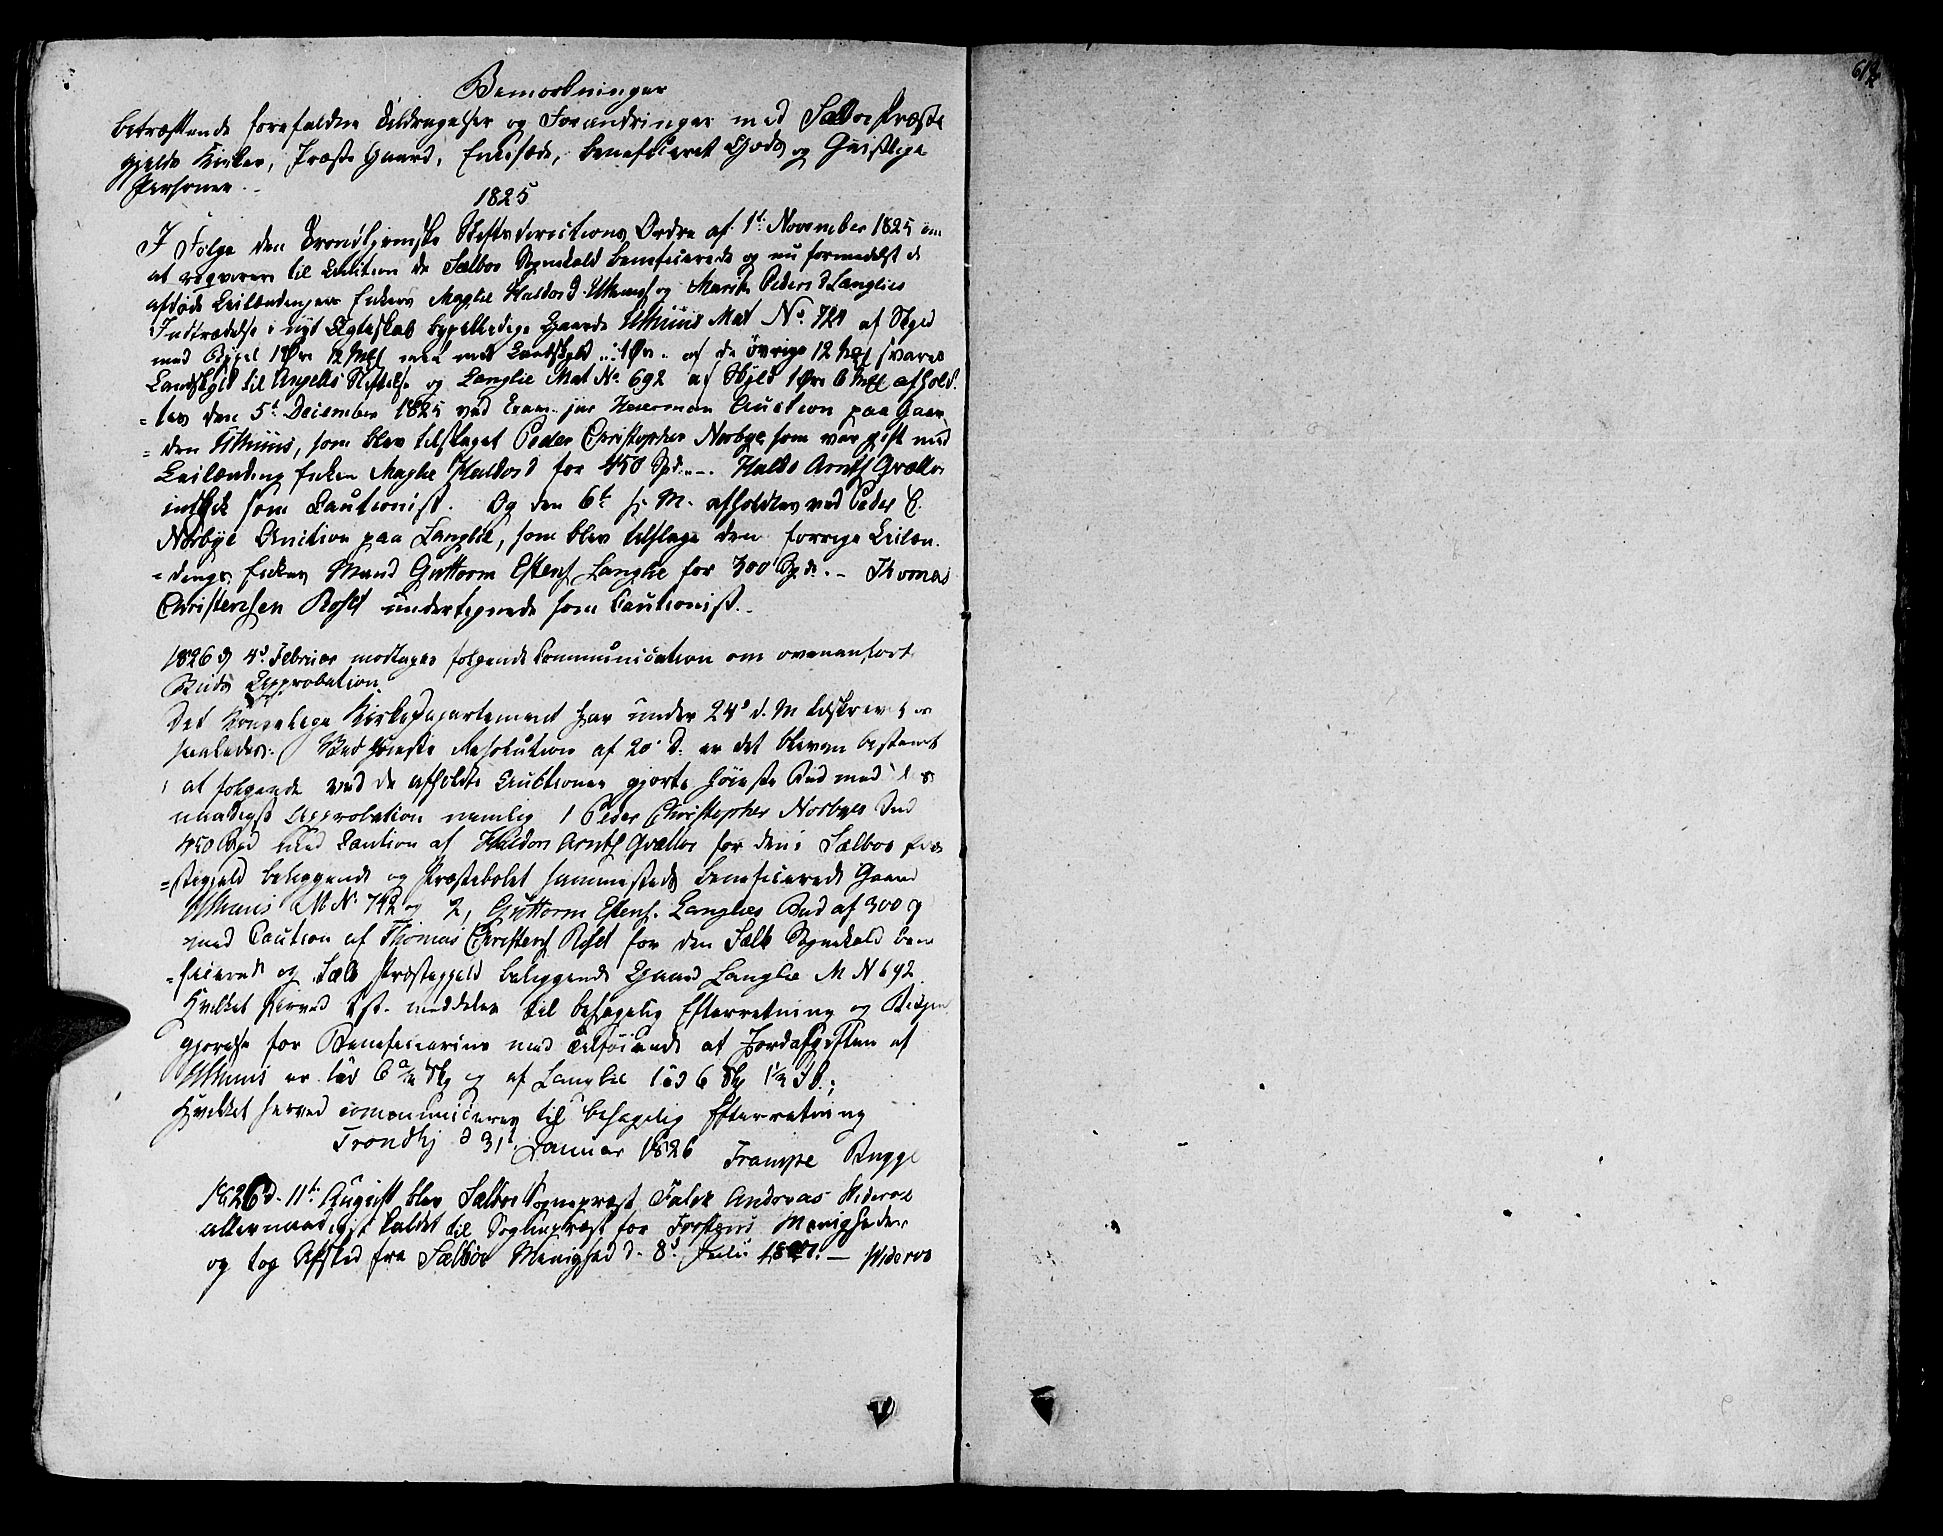 Bemærkninger
betræffende forefaldne Tildragelser og Forandringer med Sælboe Præste
gjelds Kirker, Præste Gaard, Enkesæde, beneficeret Gods og Geistlige
Personer.
1825
I Følge den Trondhjemske Stiftsdirections Ordre af 1t November 1825 om
at reqvirere til Auction de Sælboe Sognekald beneficerede og nu formedelst de
afdøde Leilændingers Enkers Maglie Haldosd Uthuus og Marit Pedersd Langlies
Indtrædelse i nyt Ægteskab bygselledige Gaarde Uthuus Mat No. af Skyld
med Bygsel 1 Øre 12 Mkl men med Landskyld 1 Øre af de øvrige 12 Mkl svares
Landskyld til Angells Stiftelse og Langlie Mat No. 692 af Skyld 1 Øre 6 Mkl afhold
=tes den 5t December 1825 ved Exam. jur Auction paa Gaar
=den Uthuus, som blev tilslaget Peder Christopher Norbye som var gift med
Leilænding Enken Maglie Haldosd for 450 Spd. Haldo Arntss Grøtte
indgik som Cautionist. Og den 6t s. M. afholdtes ved Peder C.
Norbye Auction paa Langlie, som blev tilslaget den forrige Leilæn
=dings Enkes Mand Guttorm Estenss Langlie for 300 Spd. Thomas
Christensen Roset undertegnede som Cautionist.
1826 d 4d Februar modtages følgende Communication om ovenanførte
Buds Approbation.
Det Kongelige Kirkedepartement har under 24d d. M tilskrevet os
saaledes: Ved høieste Resolution af 20 d. er det bleven bestemt
at følgende ved de afholdte Auctioner gjorte høieste Bud meddeles
naadigst Approbation nemlig 1 Peder Christopher Norbyes Bud
450 Spd med Caution af Haldor Arntss for den i Sælboe Præ
=stegjeld beliggende og Præstebolet sammesteds beneficerede Gaard
Uthuus M No og 2, Guttorm Estenss. Langlies Bud af 300
med Caution af Thomas Christenss Roset for den Sælb Sognekald bene
=ficerede og Sælb Præstegjeld beliggende Gaard Langlie M N 692
Hvilket herved meddeles til behagelig Efterretning og
gjørelse for Beneficiarius med Tilføiende at Jordafgiften af
Uthuus er og af Langlie
Hvilket herved communiceres til behagelig Efterretning
Trondhj d 31t Januar 1826 Trampe Bugge
1826 d. 11te August blev Sælboe Sognepræst Falck Andreas Widerøe
allernaadigst kaldet til Sognepræst for Menigheder
og tog Afsked fra Sælboe Menighed d. 8d Julii 1827. — Widerøe